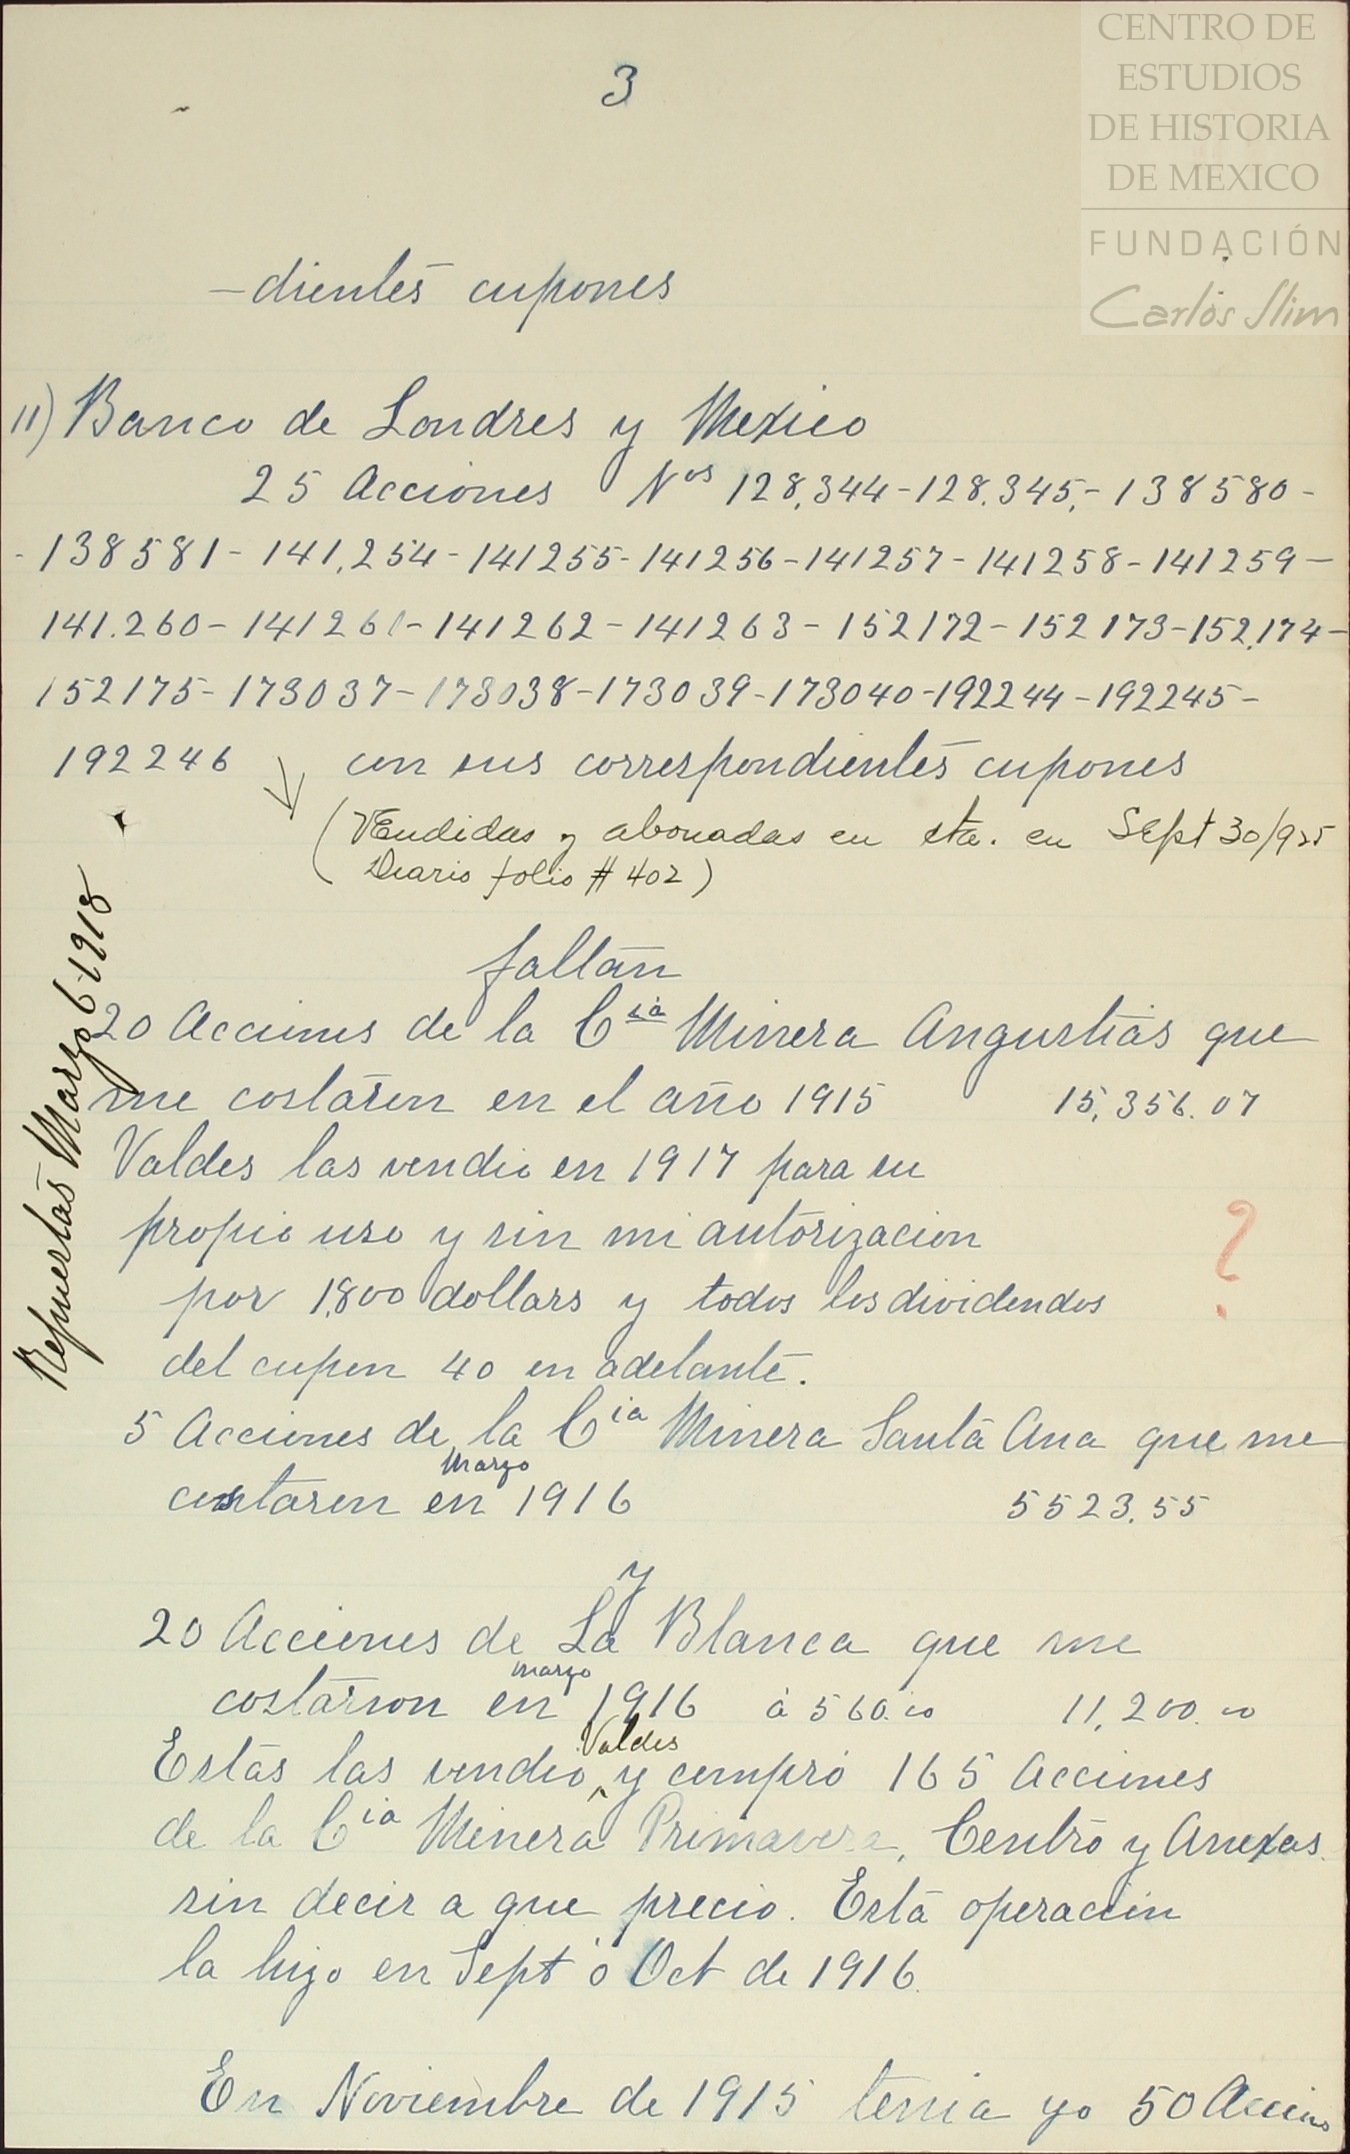 CENTRO DE
ESTUDIOS
DE HISTORIA
DE MEXICO
FUNDACIÓN
Carlos Slim
3
-dientes cupones
11) Banco de Londres y Mexico
25 Acciones Nos 128,344-128.345,-138580-
-138581-141,254-141255-141256-141257-141258-141259-
141.260-141261-141262-141263-152172-152173-152,174-
152175-173037-173038-173039-173040-192244-192245-
192246 con sus correspondientes cupones
(Vendidas y abonadas en cta. en Sept 30/925
Diario folio # 402)
faltan
20 Acciones de la Cia Minera Angustias que
me costaron en el año 1915 15,356.07
Valdes las vendio en 1917 para su
propio uso y sin mi autorizacion
por 1,800 dollars y todos los dividendos
del cupon 40 en adelante.
?
Repuestas Marzo 6-1918
5 Acciones de la Cia Minera Santa Ana que me
Marzo
costaron en 1916 5523.55
y
20 Acciones de La Blanca que me
marzo
costaron en 1916 á 560.00 11,200.00
Valdes
Estas las vendio ^ y compró 165 Acciones
de la Cia Minera Primavera, Centro y Anexas.
sin decir a que precio. Esta operacion
la hizo en Sept ó Oct de 1916.
En Noviembre de 1915 tenia yo 50 Acciones